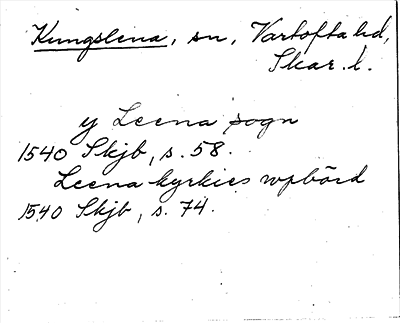 Kungslena, sn, Vartofta hd,
Skar. l.
y Leena sogn
1540 Skjb, s. 58.
Leena kyrkies wpbörd
1540 Skjb, s. 74.